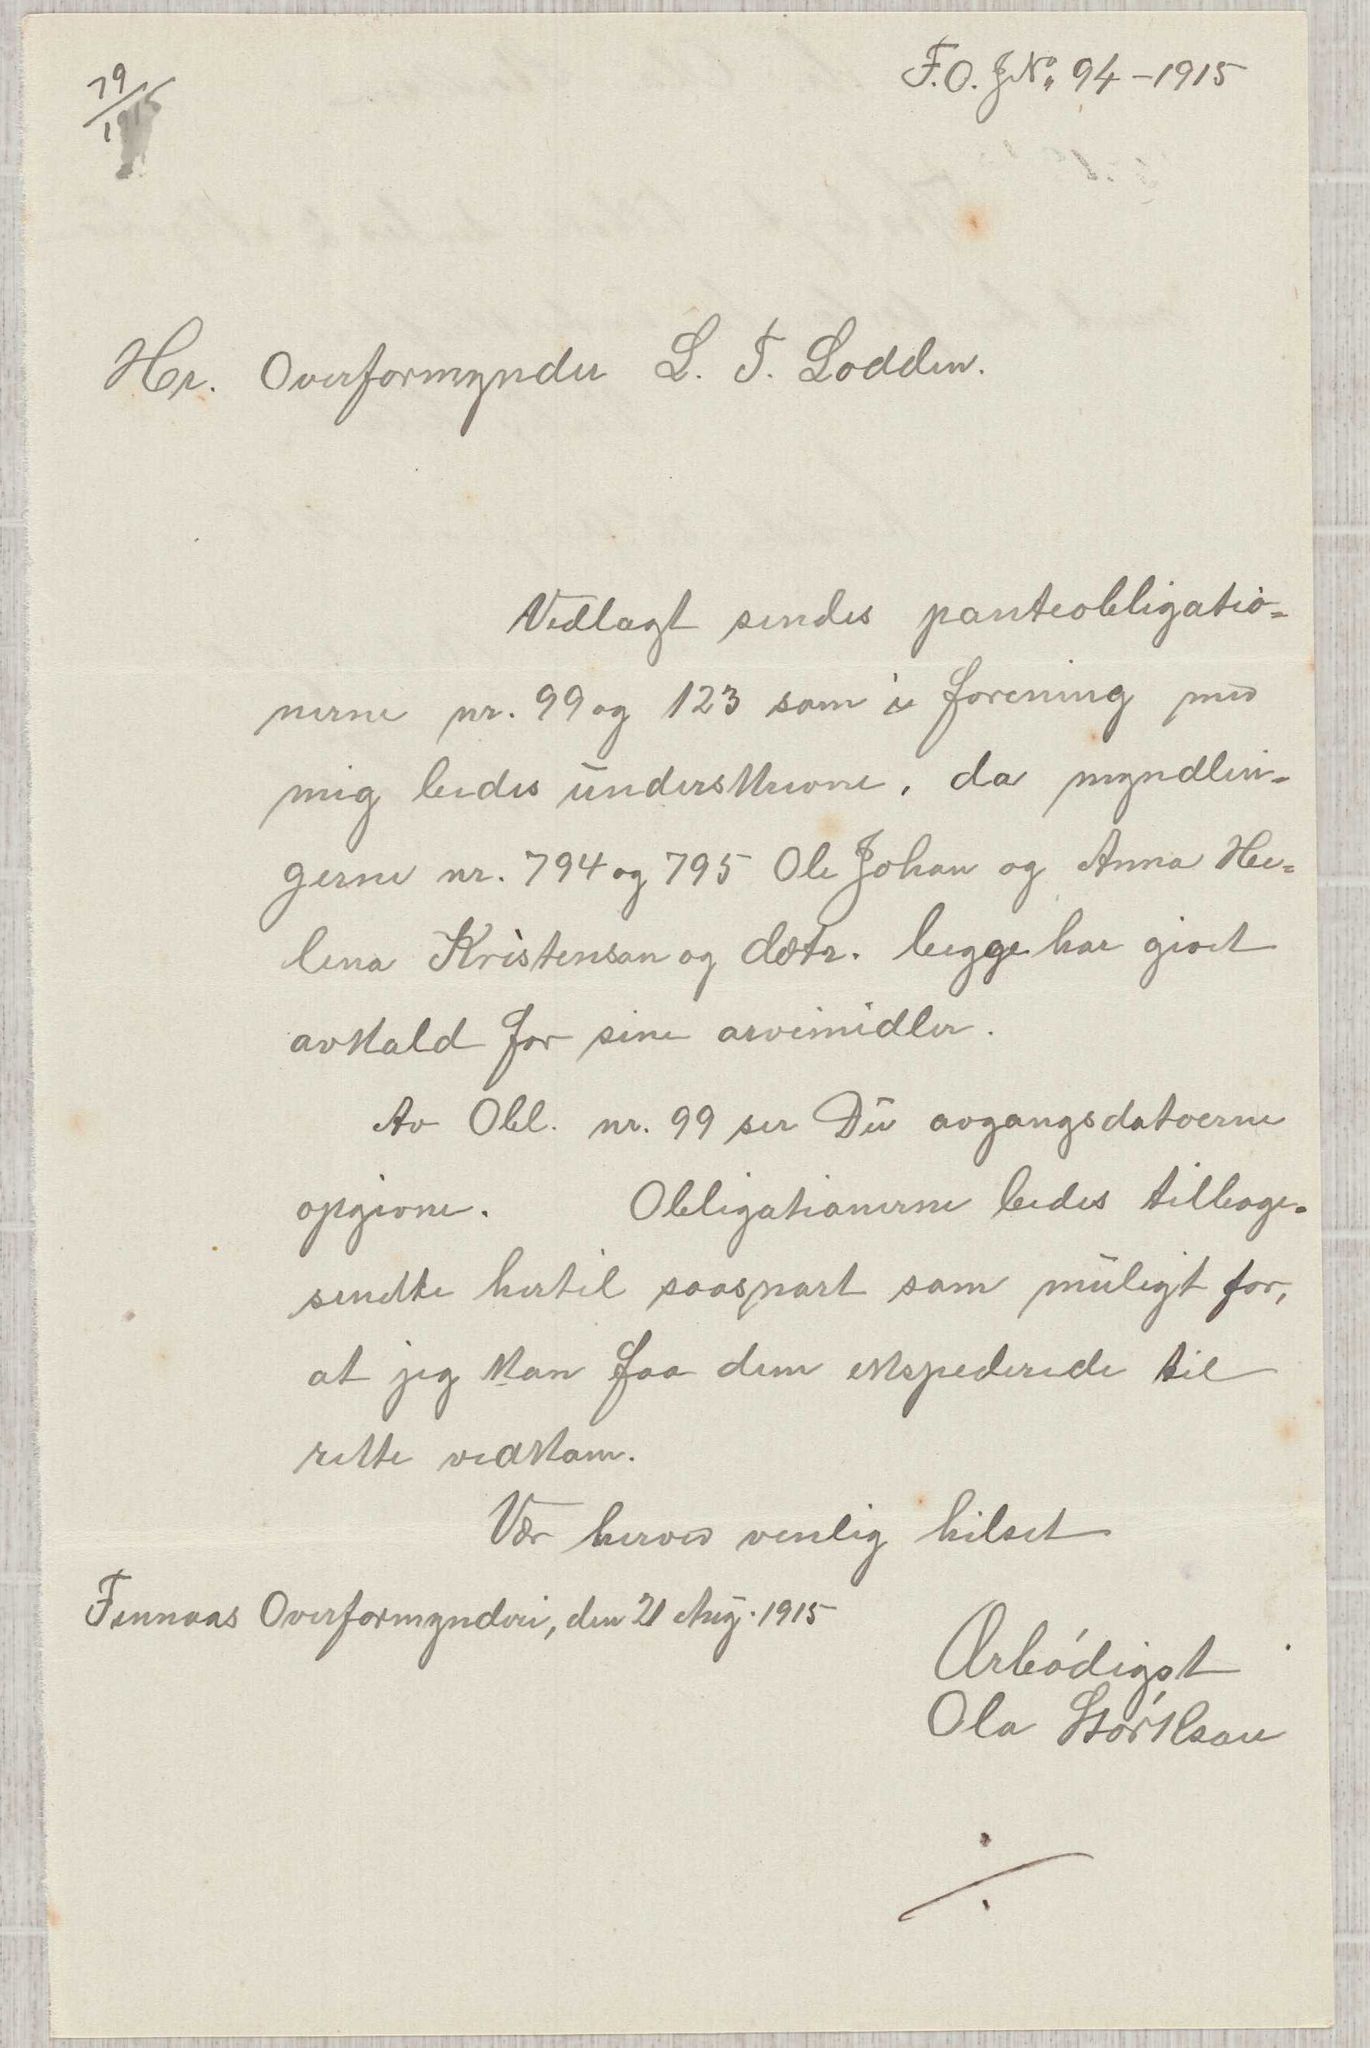 F.O. J No. 94 - 1915
Hr. Overformynder L. T. Lodden.
Vedlagt sendes panteobligatio-
nerne nr. 99 og 123 som i forening med
mig bedes underskrevne, da myndlin-
gerne nr. 794 og 795 Ole Johan og Anna He-
lena Kristensøn og dotr. begge har givet
avkald for sine arvemidler.
Av Obl. nr. 99 ser Du avgangsdatoerne
opgivne. Obligationerne bedes tilbage-
sendte hertil saasnart som muligt for,
at jeg kan faa dem ekspederede til
rette vedkom.
Vær herved venlig hilset
Finnaas Overformynderi, den 21 Aug. 1915
Ærbødigst
Ola